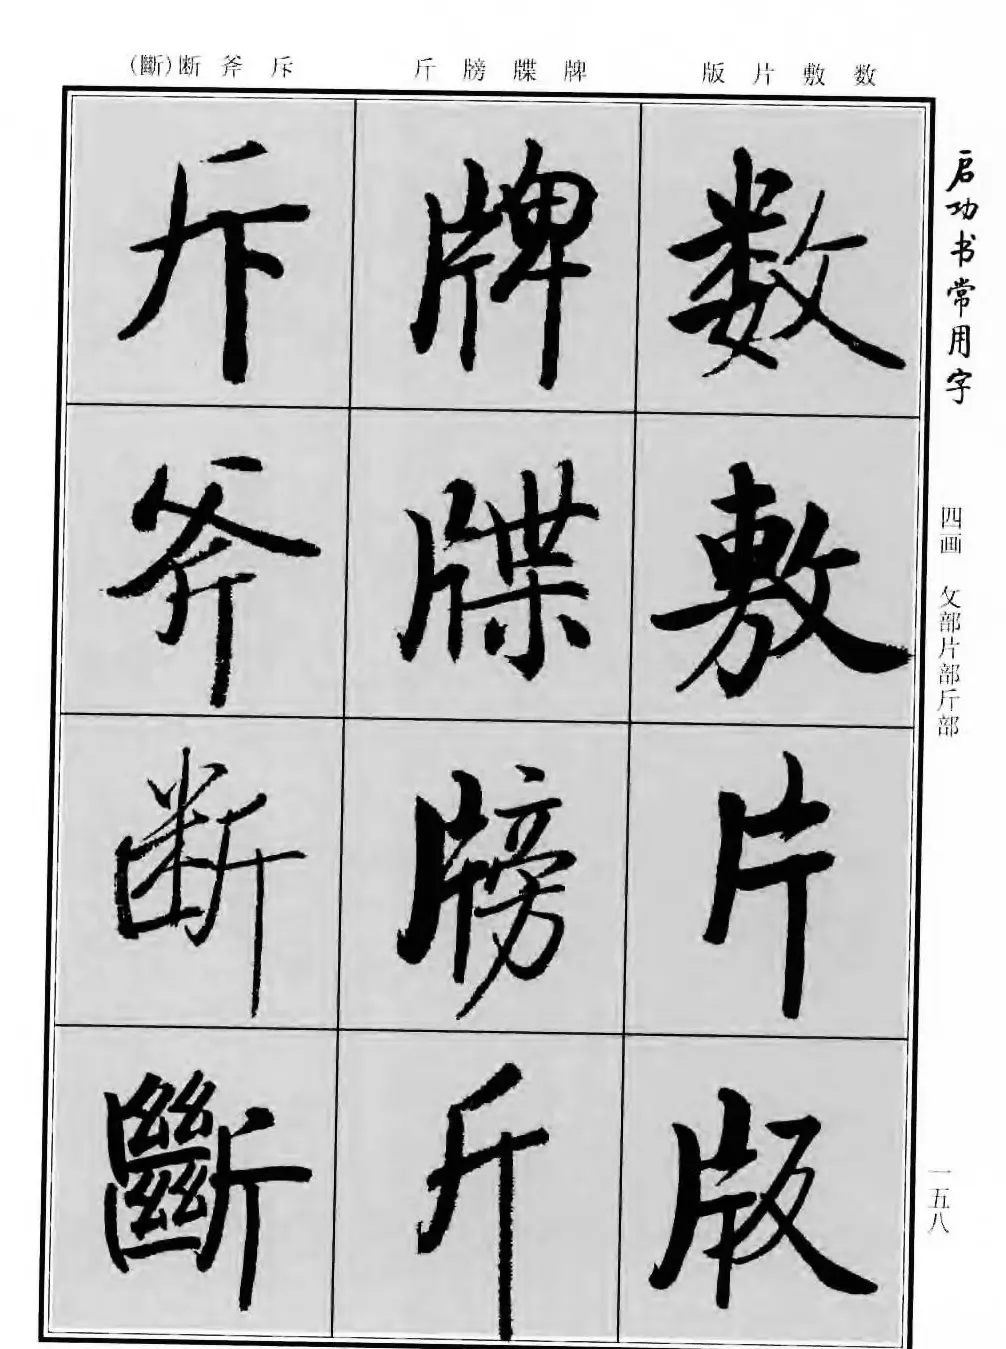 数敷片版
牌牒牓斤
斥斧断(斷)
数
敷
片
版
牌
牒
牓
斤
斥
斧
断
斷
启功书常用字
四画 攵部片部斤部
一五八